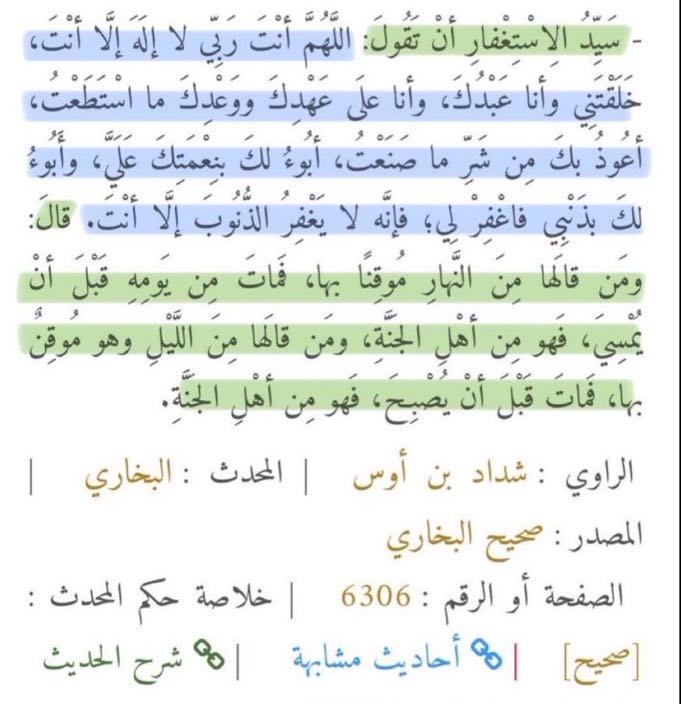 - سَيِّدُ الِاسْتِغْفارِ أنْ تَقُولَ: اللَّهُمَّ أنْتَ رَبِّي لا إلَهَ إلَّا أنْتَ،
خَلَقْتَنِي وأنا عَبْدُكَ، وأنا علَى عَهْدِكَ ووَعْدِكَ ما اسْتَطَعْتُ،
أعُوذُ بكَ مِن شَرِّ ما صَنَعْتُ، أبُوءُ لكَ بنِعْمَتِكَ عَلَيَّ، وأَبُوءُ
لكَ بذَنْبِي فاغْفِرْ لِي؛ فإنَّه لا يَغْفِرُ الذُّنُوبَ إلَّا أنْتَ. قالَ:
ومَن قالَها مِنَ النَّهارِ مُوقِنًا بها، فَماتَ مِن يَومِهِ قَبْلَ أنْ
يُمْسِيَ، فَهو مِن أهْلِ الجَنَّةِ، ومَن قالَها مِنَ اللَّيْلِ وهو مُوقِنٌ
بها، فَماتَ قَبْلَ أنْ يُصْبِحَ، فَهو مِن أهْلِ الجَنَّةِ.
الراوي : شداد بن أوس | المحدث : البخاري |
المصدر : صحيح البخاري
الصفحة أو الرقم : 6306 | خلاصة حكم المحدث :
[صحيح] | أحاديث مشابهة | شرح الحديث